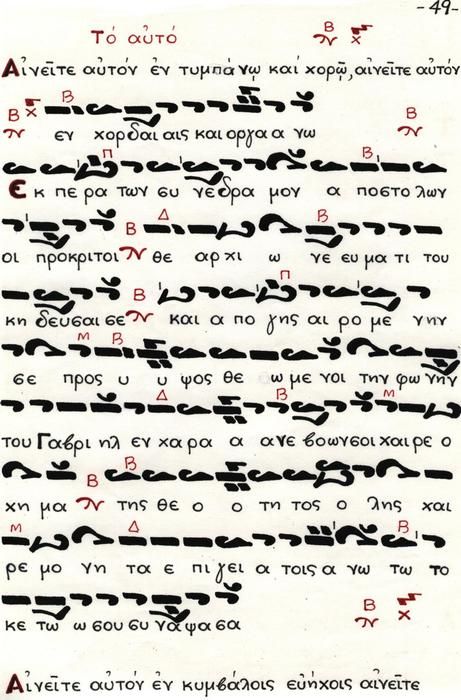 -49-
Τό αὐτό Β
Αἰνεῖτε αὐτόν ἐν τυμπάνῳ καί χορῷ, αἰνεῖτε αὐτόν
Β Β Β
εν χορδαι αις και οργα α νω
Π Β
Εκ πε ρα των συ νεδρα μον α ποστο λων
Δ Β
οι προκριτοι Β θε αρχι ω νε ευ μα τι του
Π
κη δευσαι σε Β και α πο γης αι ρο με νην
Μ Β
σε προς υ υ ψος θε ω με νοι την φω νην
Δ Β Μ
του Γαβρι ηλ εν χα ρα α ανε βοωνσοι χαι ρε ο
Β
χη μα Β της θε ο ο τη τος ο λης χαι
Μ Δ Β
ρε μο νη τα ε πι γει α τοις α νω τω το
Β
κε τω ω σου συ να ψα σα
Αἰνεῖτε αὐτόν ἐν κυμβάλοις εὐήχοις αἰνεῖτε